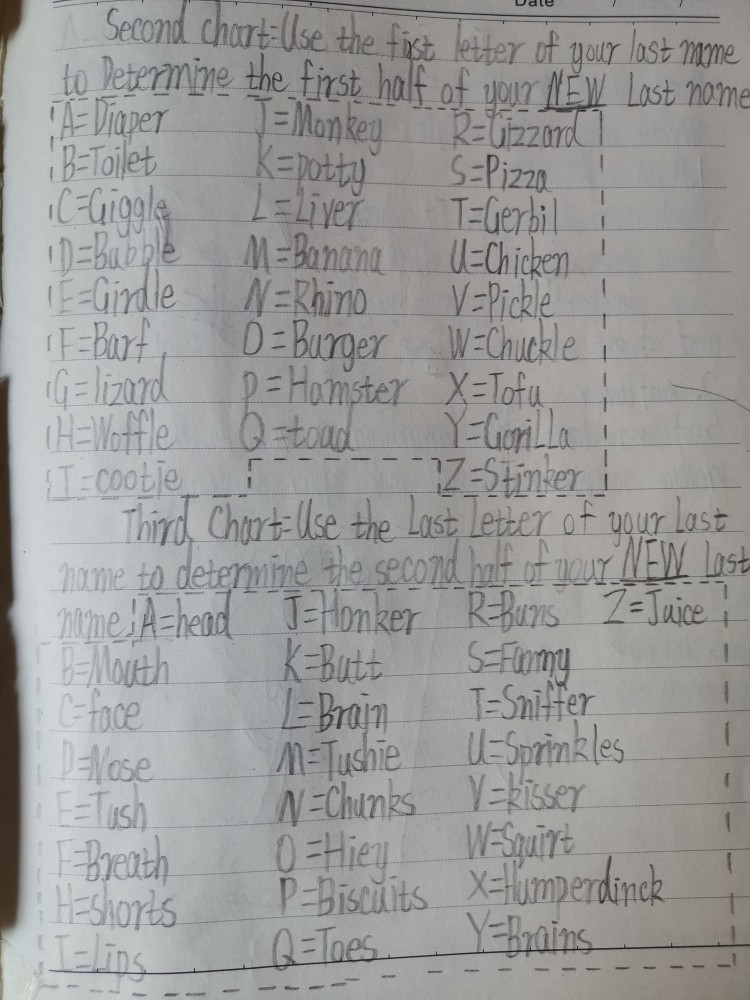 Date / /
Second chart=Use the first letter of your last name
to Determine the first half of your NEW Last name
A=Diaper J=Monkey R=Gizzard
B=Toilet K=potty S=Pizza
C=Giggle L=Liver T=Gerbil
D=Bubble M=Banana U=Chicken
E=Girdle N=Rhino V=Pickle
F=Barf O=Burger W=Chuckle
G=lizard P=Hamster X=Tofu
H=Woffle Q=toad Y=Gorilla
I=cootie Z=Stinker
Third Chart=Use the Last Letter of your Last
name to determine the second half of your NEW Last
name: A=head J=Honker R=Buns Z=Juice
B=Mouth K=Butt S=Fanny
C=face L=Brain T=Sniffer
D=Nose M=Tushie U=Sprinkles
E=Tush N=Chunks V=kisser
F=Breath O=Hiey W=Squirt
H=shorts P=Biscuits X=Humperdinck
I=Lips Q=Toes Y=Brains